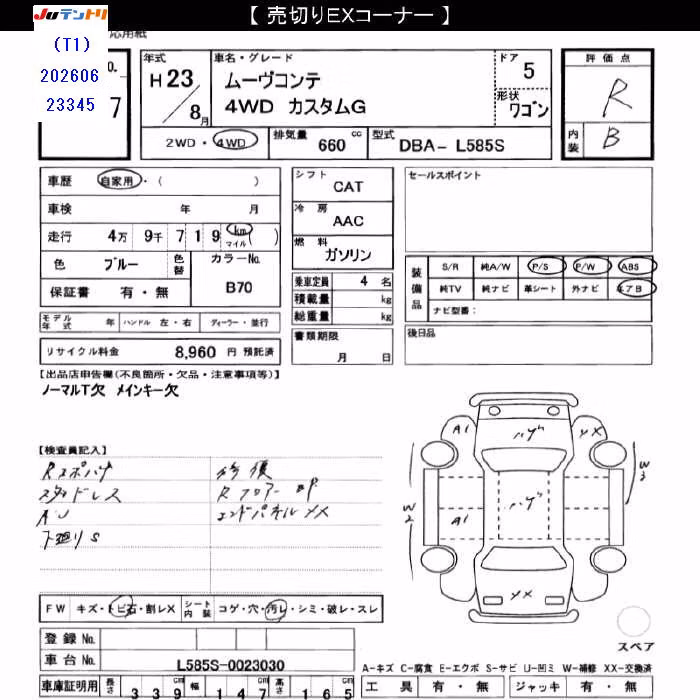 【 売切りEXコーナー 】
JUテントリ
応用紙
(T1)
202606
23345
o.
7
年式
H 23 / 8月
車名・グレード
ムーヴコンテ
4WD カスタムG
ドア
5
形状
ワゴン
評価点
R
内装
B
2WD・4WD
排気量 660 cc
型式 DBA- L585S
車歴 自家用・( )
車検 年 月
走行 4万 9千 7 1 9 km マイル ( )
色 ブルー 色替
カラーNo.
B70
保証書 有・無
モデル年式 年 ハンドル 左・右 ディーラー・並行
リサイクル料金 8,960 円 預託済
シフト
CAT
冷房
AAC
燃料
ガソリン
乗車定員 4 名
積載量 kg
総重量 kg
書類期限
月 日
セールスポイント
装備品
S/R 純A/W P/S P/W ABS
純TV 純ナビ 革シート 外ナビ エアB
ナビ型番:
後日品
【出品店申告欄(不良箇所・欠品・注意事項等)】
ノーマルT欠 メインキー欠
【検査員記入】
Rスポハゲ
スタッドレス
AU
下廻りS
修復
Rフロアー
エンドパネルXX
A1
ハゲ
XX
W3
W2
A1
ハゲ
XX
スペア
FW キズ・トビ石・割レX
シート内装 コゲ・穴・汚レ・シミ・破レ・スレ
登録 No.
車台 No. L585S-0023030
A-キズ C-腐食 E-エクボ S-サビ U-凹ミ W-補修 XX-交換済
車庫証明用 長さ 339 幅 147 高さ 165
工具 有・無 ジャッキ 有・無